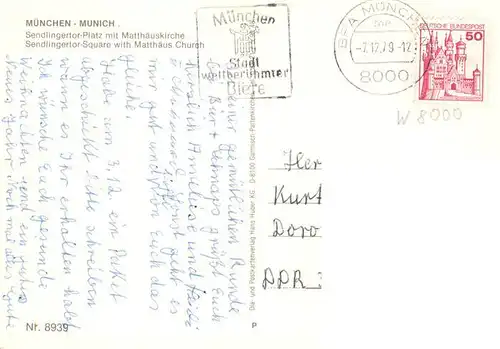 MÜNCHEN - MUNICH.
Sendlingertor-Platz mit Matthäuskirche
Sendlingertor-Square with Matthäus Church
München
Stadt
weltberühmter
Biere
BPA MÜNCHEN
-7.12.79-12
8000
DEUTSCHE BUNDESPOST
50
W 8000
einer gemütlichen Runde
bei Bier + grüßt Euch
herzlich Anneliese und Heidi
geht es
mir gut und von Euch das
gleiche.
Habe am 3.12. ein Paket
abgeschickt bitte schreiben
wann es Ihr erhalten habt
Ich wünsche Euch gesunde
Weihnachten und ein
neues Jahr noch mal alles gute
Her
Kurt
Doro
DDR
Nr. 8939
P
Bild- und Postkartenverlag Hans Huber KG D-8100 Garmisch-Partenkirchen